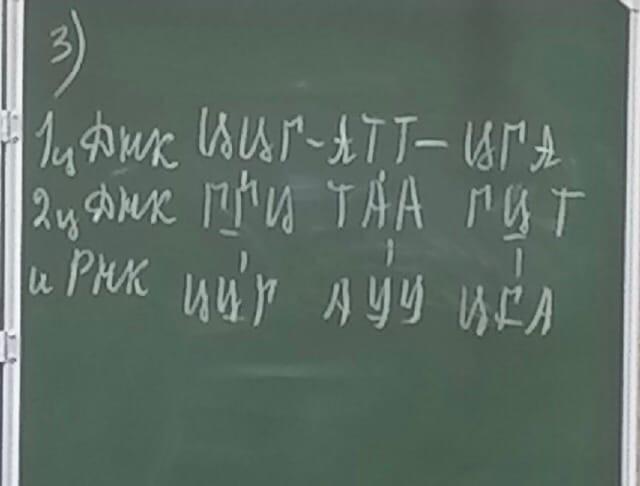 3)
1ц ДНК ЦЦГ-АТТ-ЦГА
2ц ДНК ГГЦ ТАА ГЦТ
и РНК ЦЦГ АУУ ЦГА